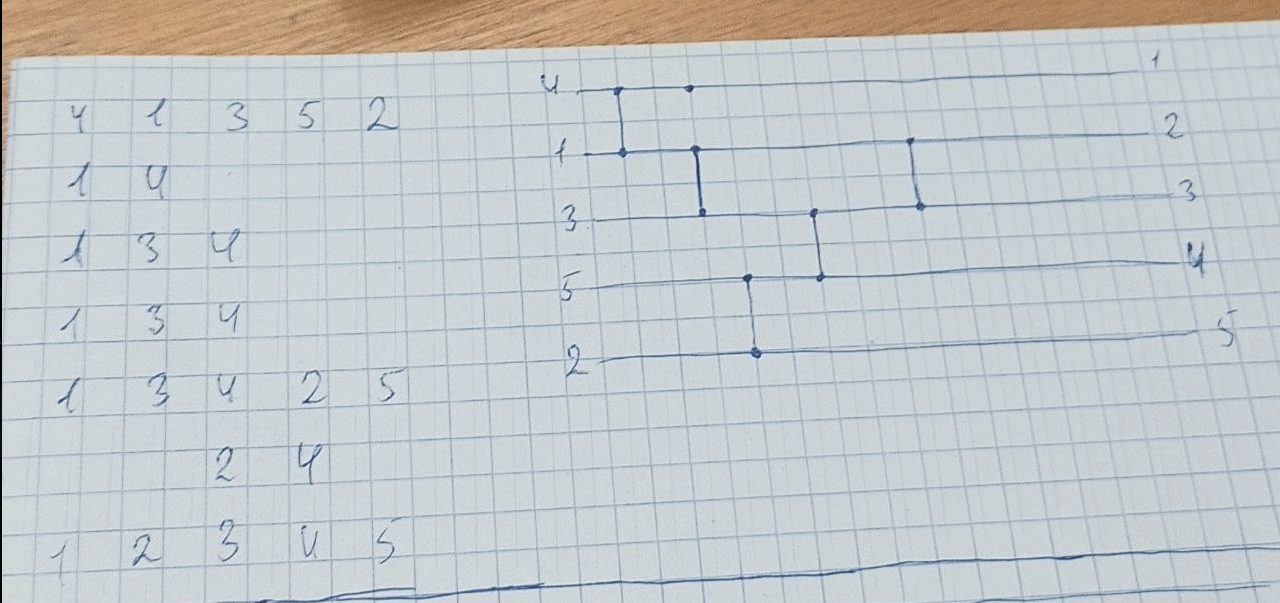 4 1 3 5 2
1 4
1 3 4
1 3 4
1 3 4 2 5
2 4
1 2 3 4 5
4 1
1 2
3 3
5 4
2 5